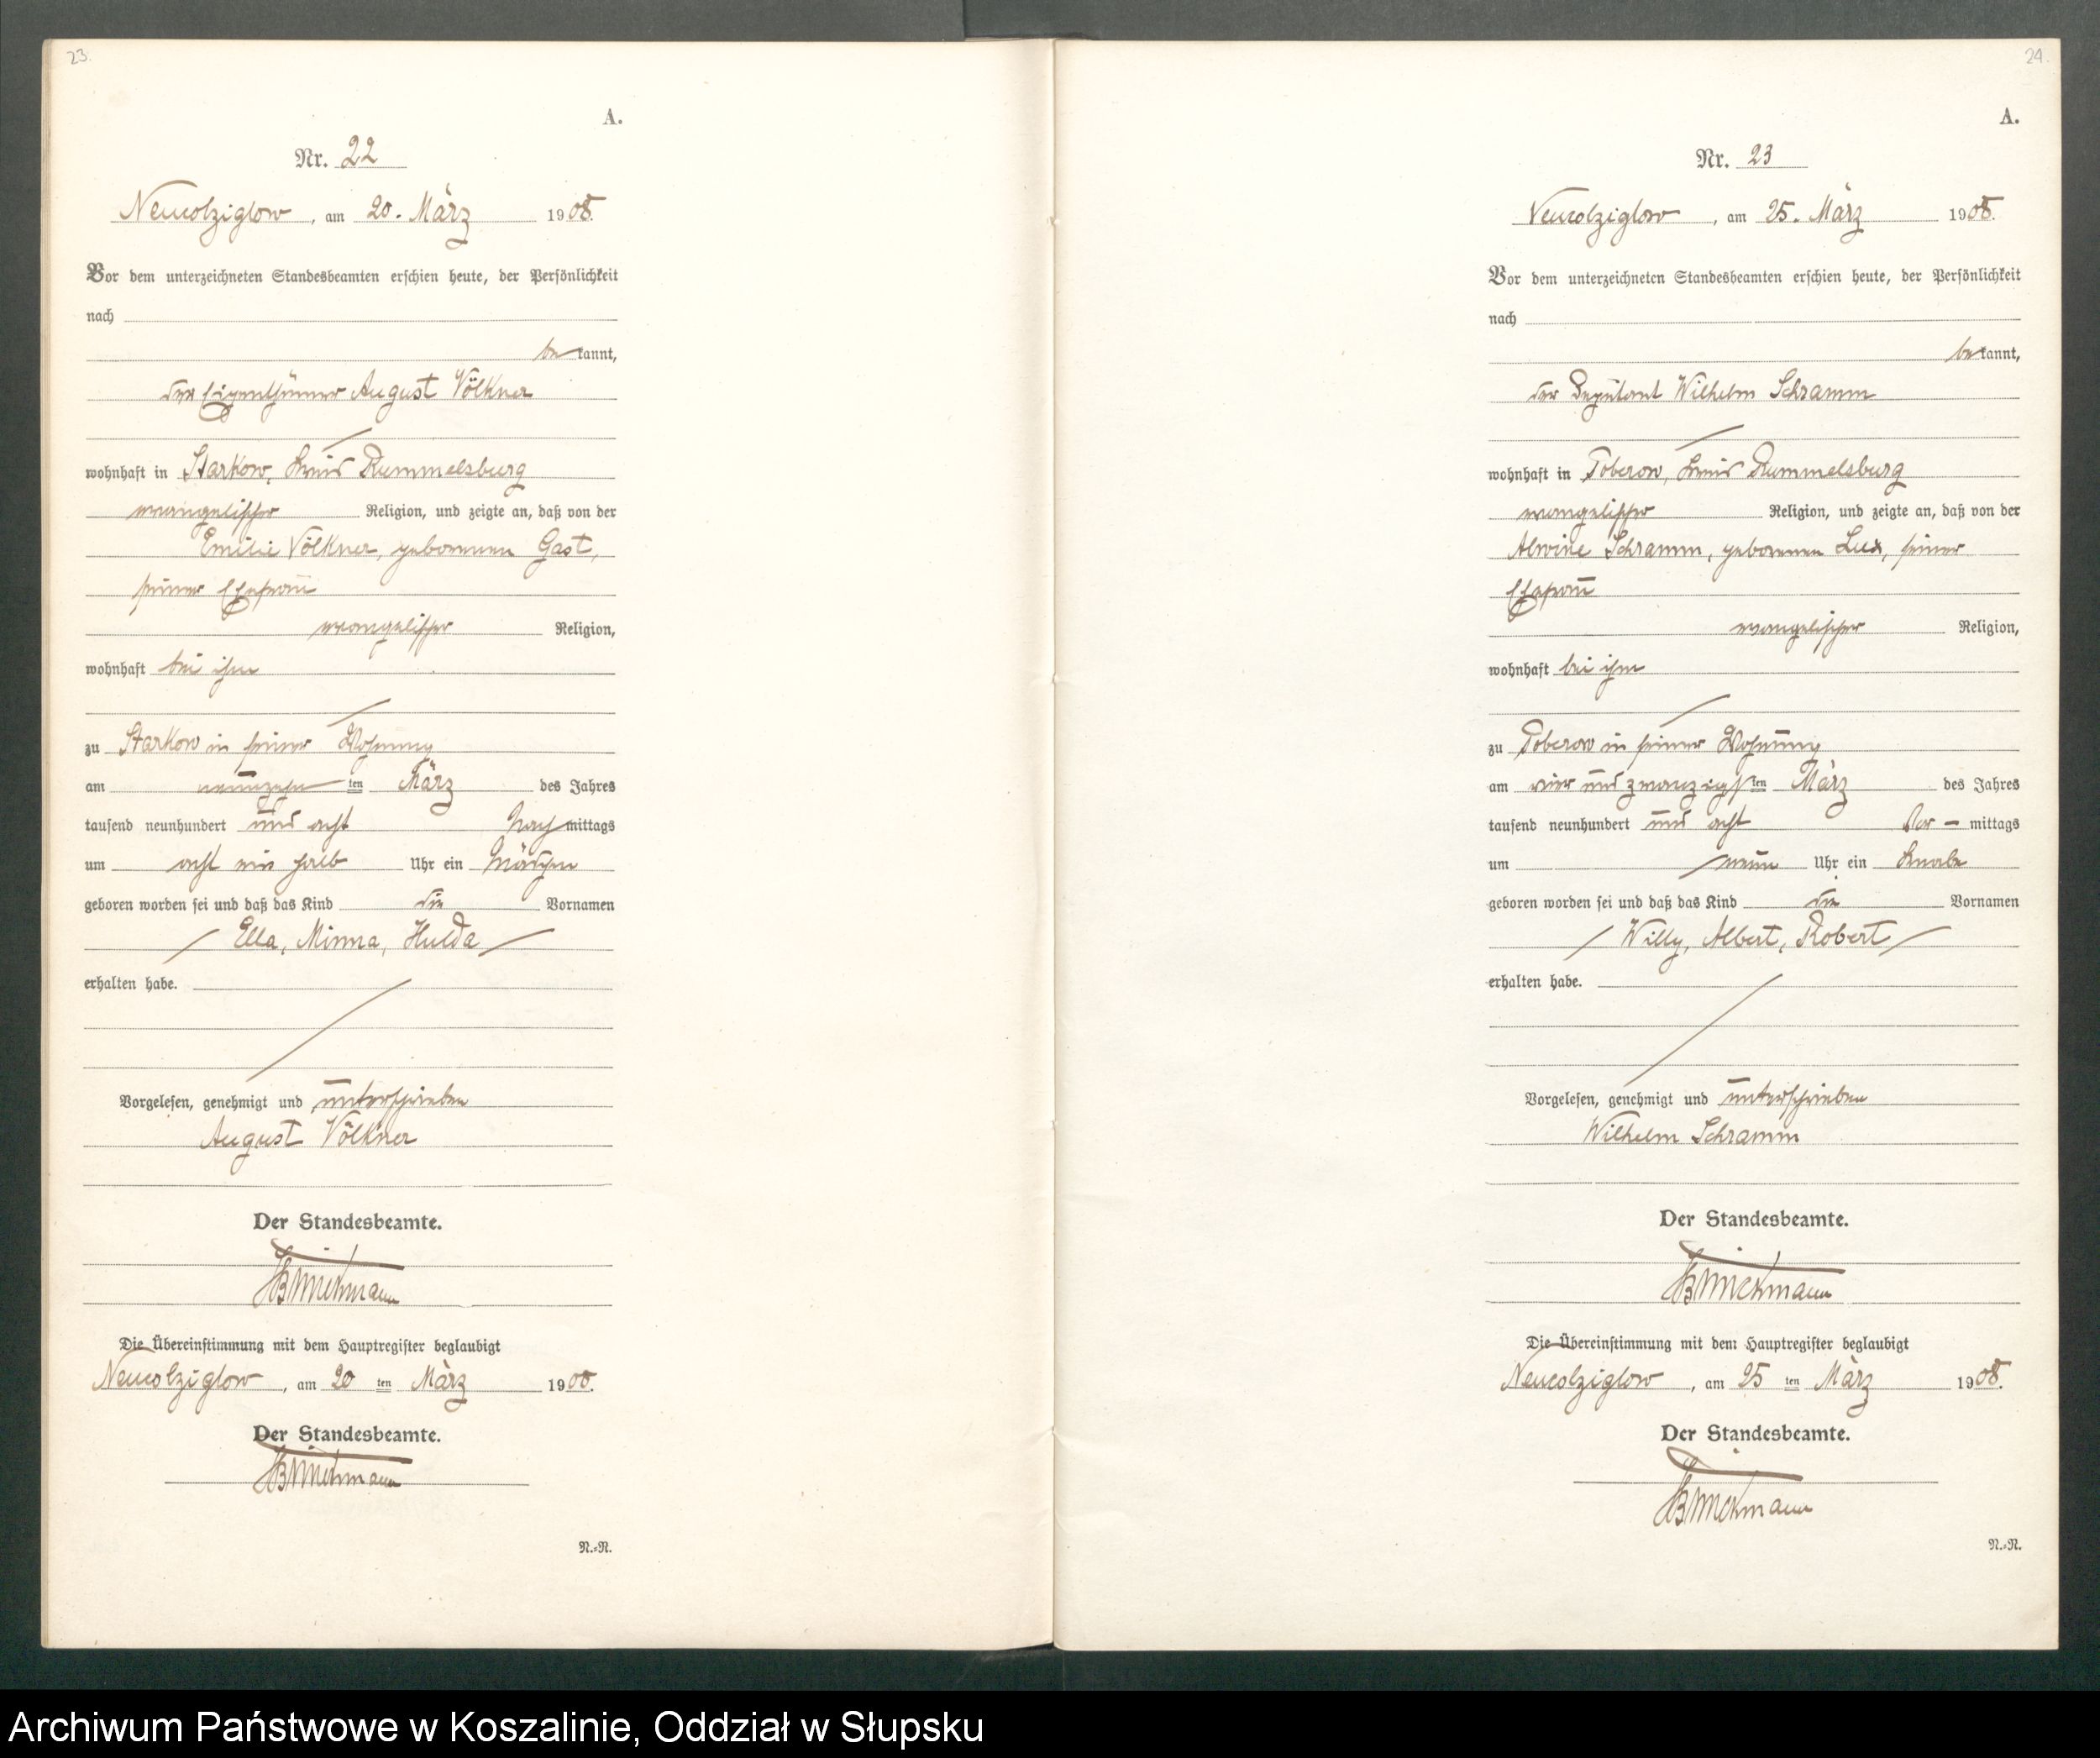 23.
A.
Nr. 22
Neukolziglow, am 20. März 1908.
Vor dem unterzeichneten Standesbeamten erschien heute, der Persönlichkeit
nach
be kannt,
der Eigenthümer August Völkner
wohnhaft in Starkow, Kreis Rummelsburg
evangelischer Religion, und zeigte an, daß von der
Emilie Völkner, geborenen Gast,
seiner Ehefrau
evangelischer Religion,
wohnhaft bei ihm
zu Starkow in seiner Wohnung
am neunzehn ten März des Jahres
tausend neunhundert und acht Nach mittags
um acht ein halb Uhr ein Mädchen
geboren worden sei und daß das Kind die Vornamen
Ella, Minna, Hulda
erhalten habe.
Vorgelesen, genehmigt und unterschrieben
August Völkner
Der Standesbeamte.
Die Übereinstimmung mit dem Hauptregister beglaubigt
Neukolziglow, am 20 ten März 1908.
Der Standesbeamte.
N.=N.
24.
A.
Nr. 23
Neukolziglow, am 25. März 1908.
Vor dem unterzeichneten Standesbeamten erschien heute, der Persönlichkeit
nach
be kannt,
der Deputant Wilhelm Schramm
wohnhaft in Poberow, Kreis Rummelsburg
evangelischer Religion, und zeigte an, daß von der
Alwine Schramm, geborenen Lux, seiner
Ehefrau
evangelischer Religion,
wohnhaft bei ihm
zu Poberow in seiner Wohnung
am vier und zwanzigs ten März des Jahres
tausend neunhundert und acht Vor – mittags
um neun Uhr ein Knabe
geboren worden sei und daß das Kind die Vornamen
Willy, Albert, Robert
erhalten habe.
Vorgelesen, genehmigt und unterschrieben
Wilhelm Schramm
Der Standesbeamte.
Die Übereinstimmung mit dem Hauptregister beglaubigt
Neukolziglow, am 25 ten März 1908.
Der Standesbeamte.
N.=N.
Archiwum Państwowe w Koszalinie, Oddział w Słupsku